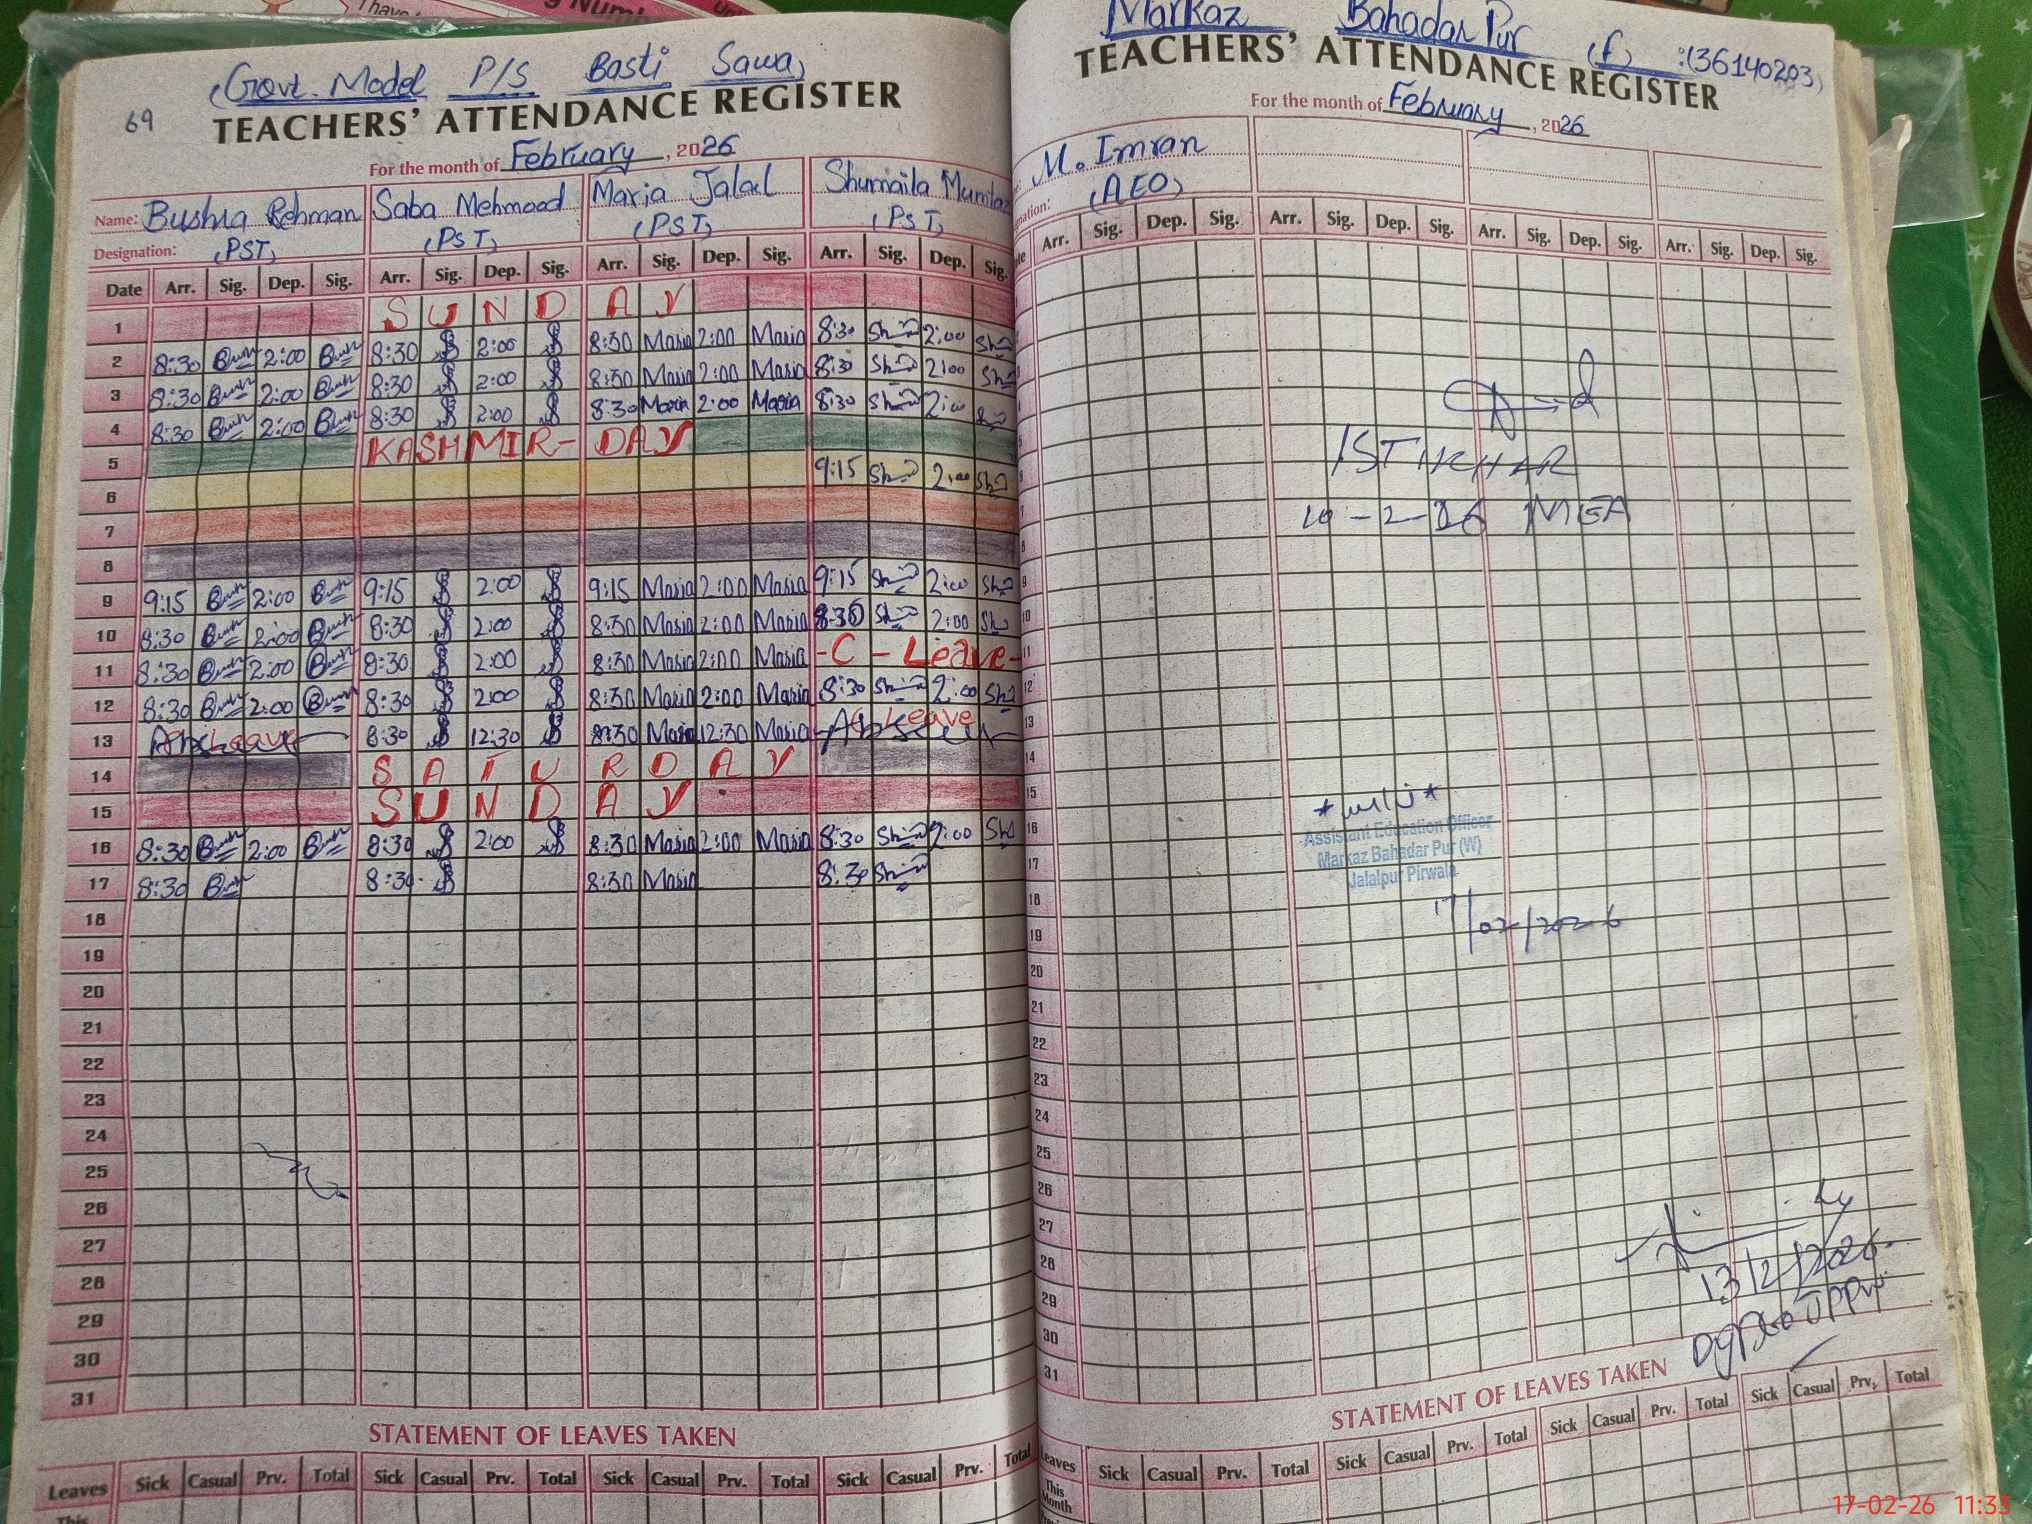 (Govt. Model P/S Basti Sawa)
69
TEACHERS' ATTENDANCE REGISTER
For the month of February, 2026
Name: Bushra Rehman Saba Mehmood Maria Jalal Shumaila Mumtaz
Designation: (PST) (PST) (PST) (PST)
Date Arr. Sig. Dep. Sig. Arr. Sig. Dep. Sig. Arr. Sig. Dep. Sig. Arr. Sig. Dep. Sig.
1 SUNDAY
2 8:30 Bush 2:00 Bush 8:30 2:00 8:30 Maria 2:00 Maria 8:30 2:00
3 8:30 Bush 2:00 Bush 8:30 2:00 8:30 Maria 2:00 Maria 8:30 2:00
4 8:30 Bush 2:00 Bush 8:30 2:00 8:30 Maria 2:00 Maria 8:30 2:00
5 KASHMIR-DAY
6 9:15 2:00
7
8
9 9:15 Bush 2:00 Bush 9:15 2:00 9:15 Maria 2:00 Maria 9:15 2:00
10 8:30 Bush 2:00 Bush 8:30 2:00 8:30 Maria 2:00 Maria 8:30 2:00
11 8:30 Bush 2:00 Bush 8:30 2:00 8:30 Maria 2:00 Maria -C-Leave-
12 8:30 Bush 2:00 Bush 8:30 2:00 8:30 Maria 2:00 Maria 8:30 2:00
13 Leave 8:30 12:30 8:30 Maria 12:30 Maria Absent Leave
14 SATURDAY
15 SUNDAY
16 8:30 Bush 2:00 Bush 8:30 2:00 8:30 Maria 2:00 Maria 8:30 2:00
17 8:30 Bush 8:30 8:30 Maria 8:30
18
19
20
21
22
23
24
25
26
27
28
29
30
31
STATEMENT OF LEAVES TAKEN
Leaves Sick Casual Prv. Total Sick Casual Prv. Total Sick Casual Prv. Total Sick Casual Prv. Total
This
Markaz Bahadar Pur (f) :(36140203)
TEACHERS' ATTENDANCE REGISTER
For the month of February, 2026
M. Imran
(AEO)
Arr. Sig. Dep. Sig. Arr. Sig. Dep. Sig. Arr. Sig. Dep. Sig. Arr. Sig. Dep. Sig.
ISTIKHAR
10-2-26 MEA
9
10
11
12
13
14
15
16
17
18
19
20
21
22
23
24
25
26
27
28
29
30
31
Assistant Education Officer
Markaz Bahadar Pur (W)
Jalalpur Pirwala
17/02/2026
13/2/2026
STATEMENT OF LEAVES TAKEN
Leaves Sick Casual Prv. Total Sick Casual Prv. Total Sick Casual Prv. Total Sick Casual Prv. Total
This Month
17-02-26 11:33